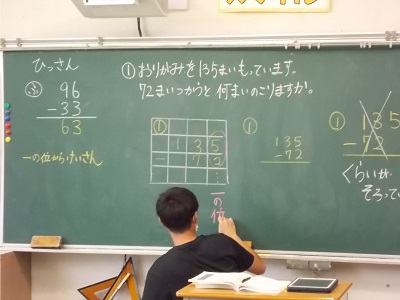 ひっさん
ふ 96
-33
63
一の位からけいさん
① おりがみを135まいもっています。
72まいつかうと何まいのこりますか。
①
135
-72
一の位
①
135
-72
① 135
-72
くらいが
そろって